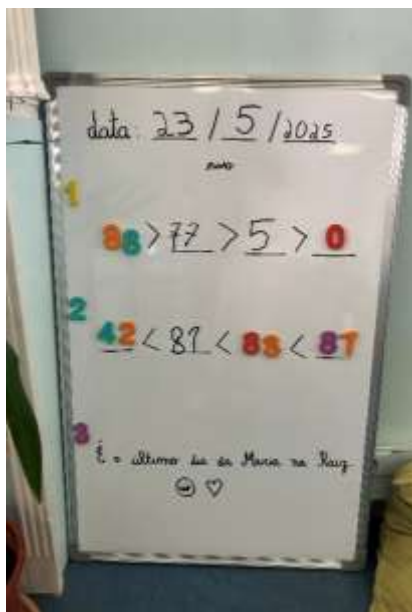 data: 23 / 5 / 2025
1
86 > 77 > 5 > 0
2
42 < 81 < 83 < 87
3
É o último dia da Maria na Raiz